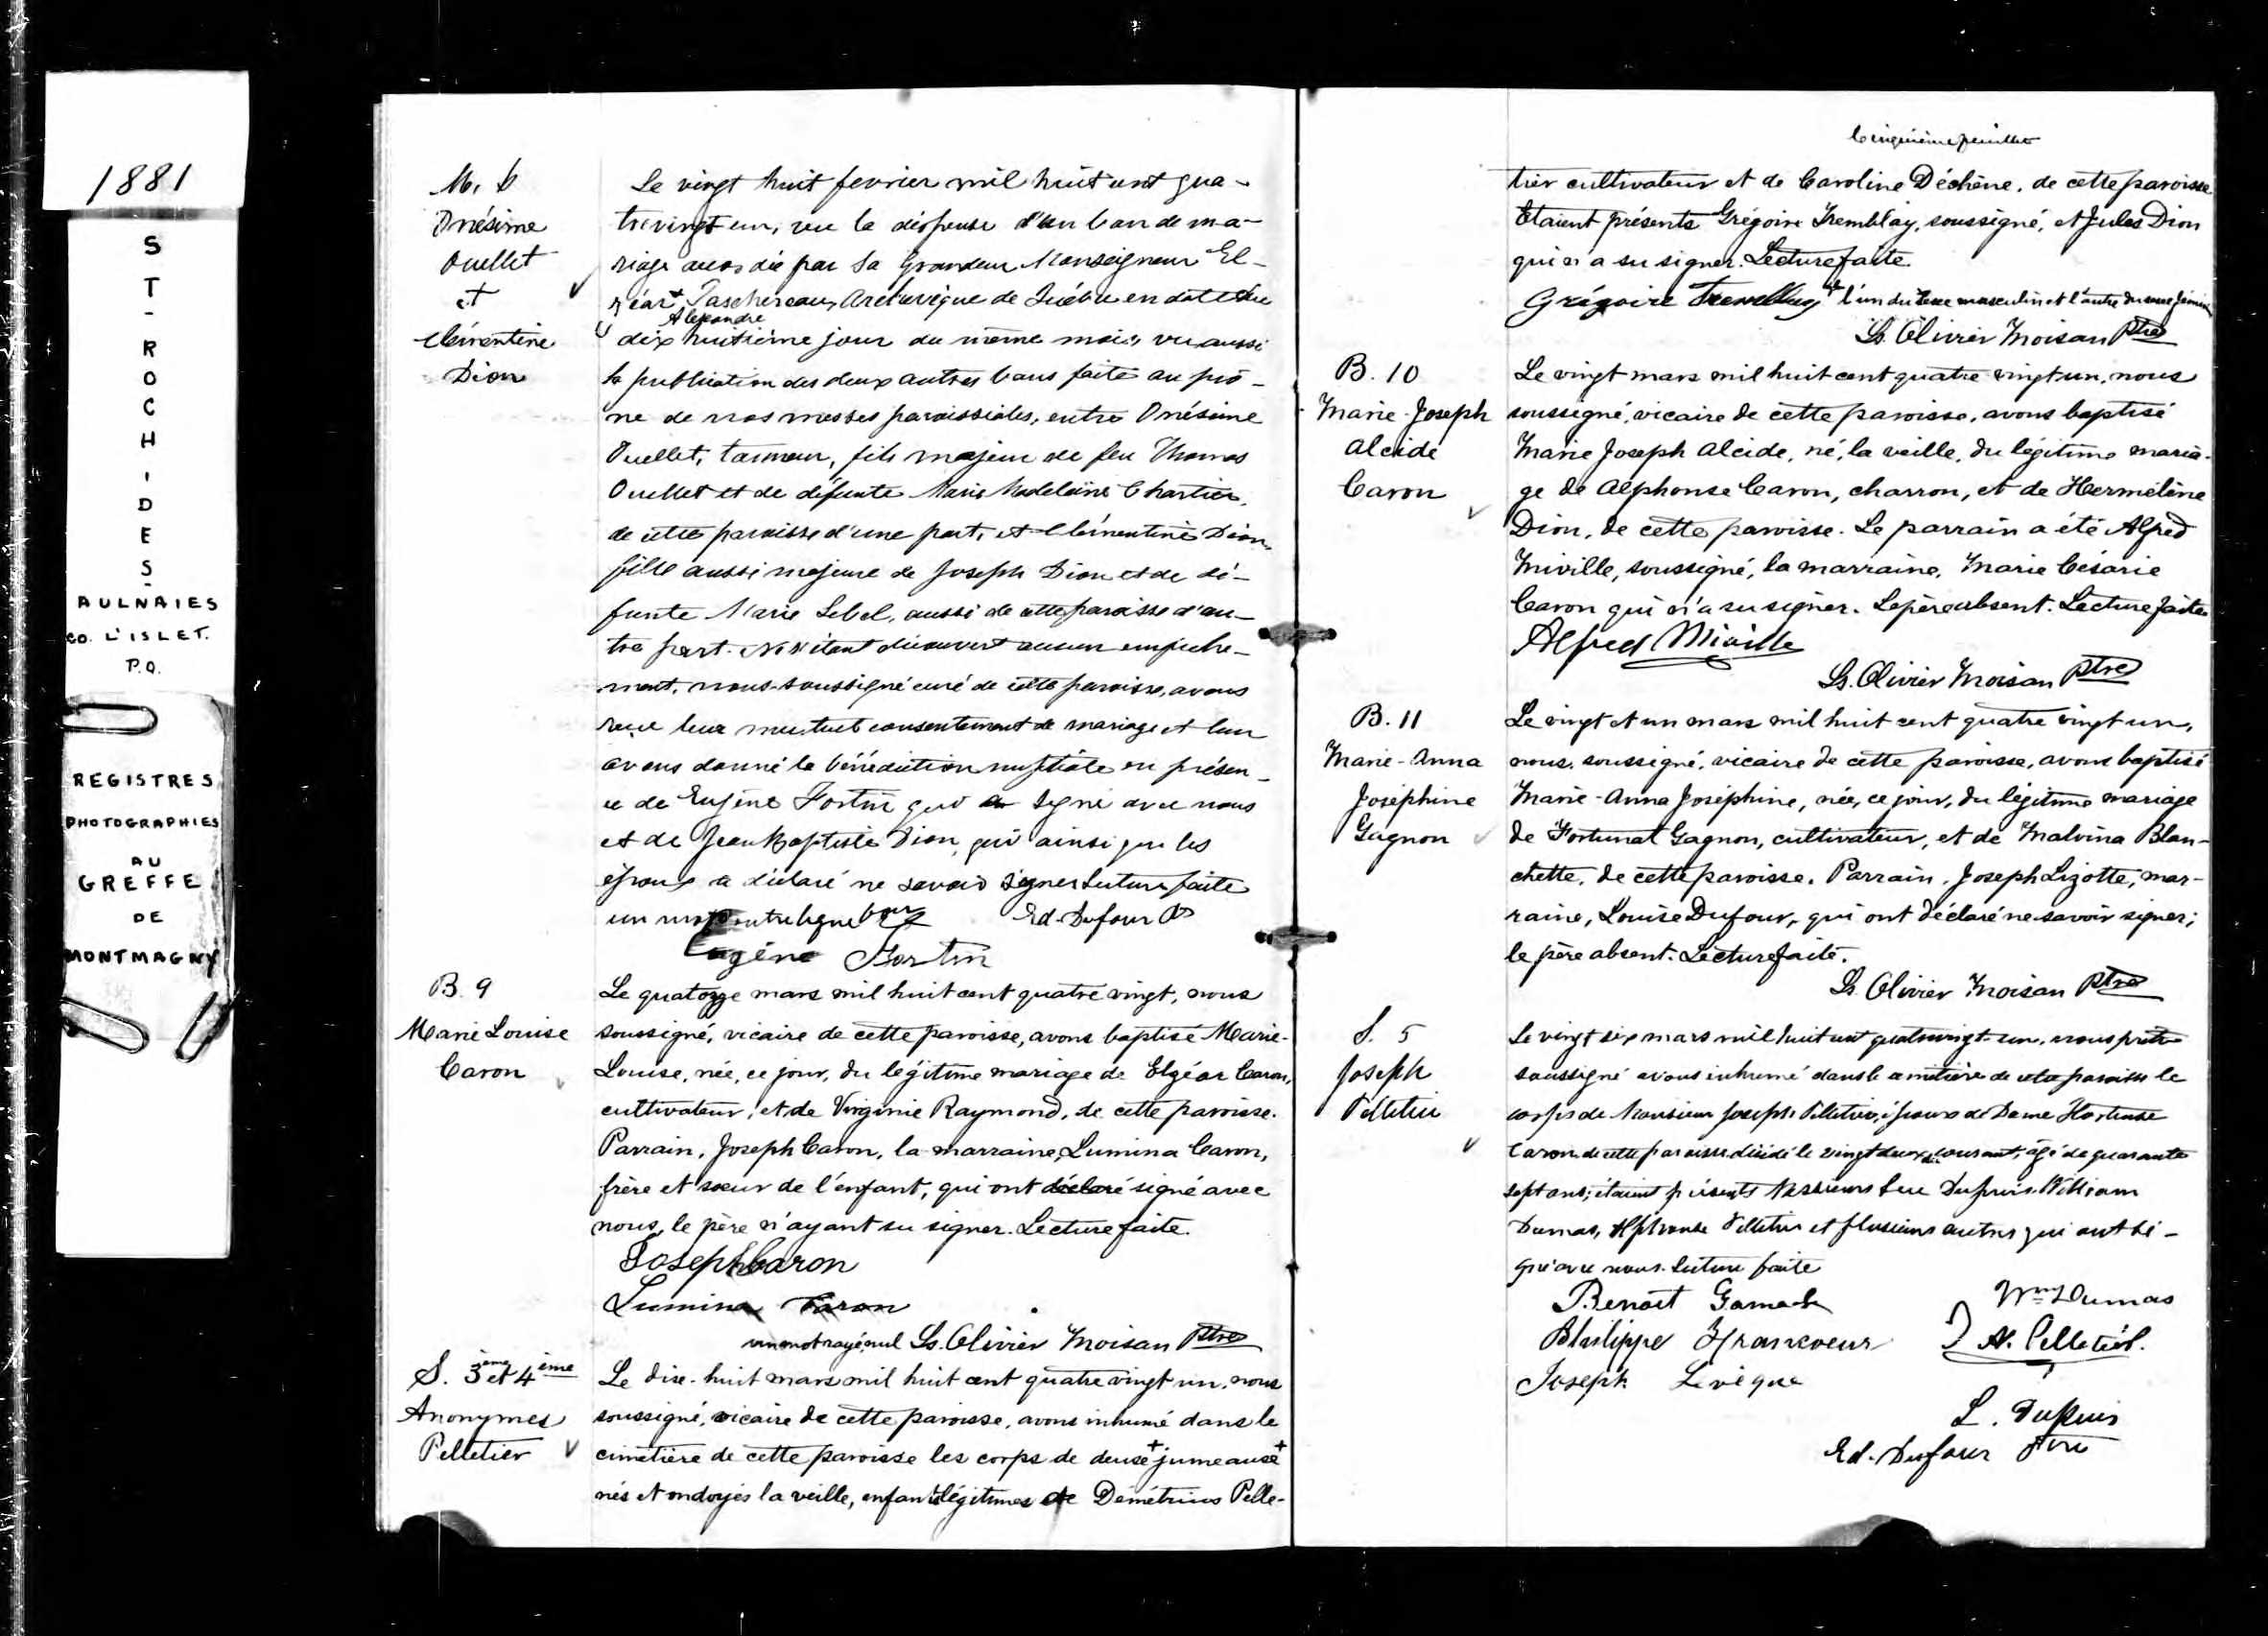 1881
ST-ROCH-DES-
AULNAIES
CO. L'ISLET.
P.Q.
REGISTRES
PHOTOGRAPHIES
AU
GREFFE
DE
MONTMAGNY
M. 6
Onésime
Ouellet
et
Clémentine
Dion
Le vingt huit fevrier mil huit cent qua-
trevingt un, vu la dispense d'un ban de ma-
riage accordée par Sa Grandeur Monseigneur El-
zéar + Taschereau, Archevêque de Québec en date du
Alexandre
dix huitième jour du même mois, vu aussi
la publication des deux autres bans faite au prô-
ne de nos messes paroissiales, entre Onésime
Ouellet, tanneur, fils majeur de feu Thomas
Ouellet et de défunte Marie Madeleine Chartier,
de cette paroisse d'une part, et Clémentine Dion,
fille aussi majeure de Joseph Dion et de dé-
funte Marie Lebel, aussi de cette paroisse d'au-
tre part. Ne s'étant découvert aucun empêche-
ment, nous soussigné curé de cette paroisse, avons
reçu leur mutuel consentement de mariage et leur
avons donné la bénédiction nuptiale en présen-
ce de Eugène Fortin qui a signé avec nous
et de Jean Baptiste Dion, qui ainsi que les
époux a déclaré ne savoir signer lecture faite
un mot entreligne bon Ed. Dufour Ptre
Eugène Fortin
B. 9
Marie Louise
Caron
Le quatorze mars mil huit cent quatre vingt, nous
soussigné, vicaire de cette paroisse, avons baptisé Marie-
Louise, née, ce jour, du légitime mariage de Elzéar Caron,
cultivateur, et de Virginie Raymond, de cette paroisse.
Parrain, Joseph Caron, la marraine, Lumina Caron,
frère et soeur de l'enfant, qui ont déclaré signé avec
nous, le père n'ayant su signer. Lecture faite.
Joseph Caron
Lumina Caron
un mot rayé nul Ls. Olivier Moisan Ptre
S. 3ème et 4ème
Anonymes
Pelletier
Le dix-huit mars mil huit cent quatre vingt un, nous
soussigné, vicaire de cette paroisse, avons inhumé dans le
cimetière de cette paroisse les corps de deux + jumeaux +
nés et ondoyés la veille, enfants légitimes de Démétrius Pelle-
Cinquième feuillet
tier cultivateur et de Caroline Déchêne, de cette paroisse
Etaient présents Grégoire Tremblay, soussigné, et Jules Dion
qui n'a su signer. Lecture faite.
Grégoire Tremblay + l'un du sexe masculin et l'autre du sexe féminin
Ls. Olivier Moisan Ptre
B. 10
Marie-Joseph
Alcide
Caron
Le vingt mars mil huit cent quatre vingt un, nous
soussigné, vicaire de cette paroisse, avons baptisé
Marie Joseph Alcide, né, la veille, du légitime maria-
ge de Alphonse Caron, charron, et de Hermélène
Dion, de cette paroisse. Le parrain a été Alfred
Miville, soussigné, la marraine, Marie Césarie
Caron qui n'a su signer. Le père absent. Lecture faite.
Alfred Miville
Ls. Olivier Moisan Ptre
B. 11
Marie-Anna
Joséphine
Gagnon
Le vingt et un mars mil huit cent quatre vingt un,
nous, soussigné, vicaire de cette paroisse, avons baptisé
Marie-Anna Joséphine, née, ce jour, du légitime mariage
de Fortunat Gagnon, cultivateur, et de Malvina Blan-
chette, de cette paroisse. Parrain, Joseph Lizotte, mar-
raine, Louise Dufour, qui ont déclaré ne savoir signer;
le père absent. Lecture faite.
Ls. Olivier Moisan Ptre
S. 5
Joseph
Pelletier
Le vingt six mars mil huit cent quatrevingt-un, nous prêtre
soussigné avons inhumé dans le cimetière de cette paroisse le
corps de Monsieur Joseph Pelletier, époux de Dame Hortense
Caron de cette paroisse décédé le vingt deux du courant, âgé de quarante
sept ans; étaient présents Messieurs Luc Dupuis, William
Dumas, Alphonse Pelletier et plusieurs autres qui ont si-
gné avec nous. lecture faite
Benoit Gamach
Wm Dumas
Philippe Francoeur
A. Pelletier.
Joseph Levêque
L. Dupuis
Ed. Dufour Ptre